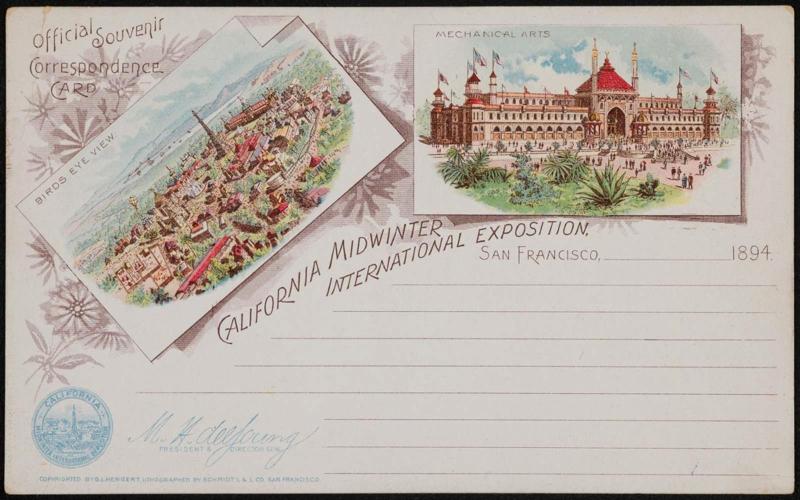 Official Souvenir
Correspondence
CARD
BIRDS EYE VIEW
MECHANICAL ARTS
CALIFORNIA MIDWINTER
INTERNATIONAL EXPOSITION,
SAN FRANCISCO, 1894.
CALIFORNIA
MIDWINTER INTERNATIONAL EXPOSITION
M. H. de Young
PRESIDENT & DIRECTOR GEN.
COPYRIGHTED BY G.L.HERGERT, LITHOGRAPHED BY SCHMIDT L. & L. CO. SAN FRANCISCO.